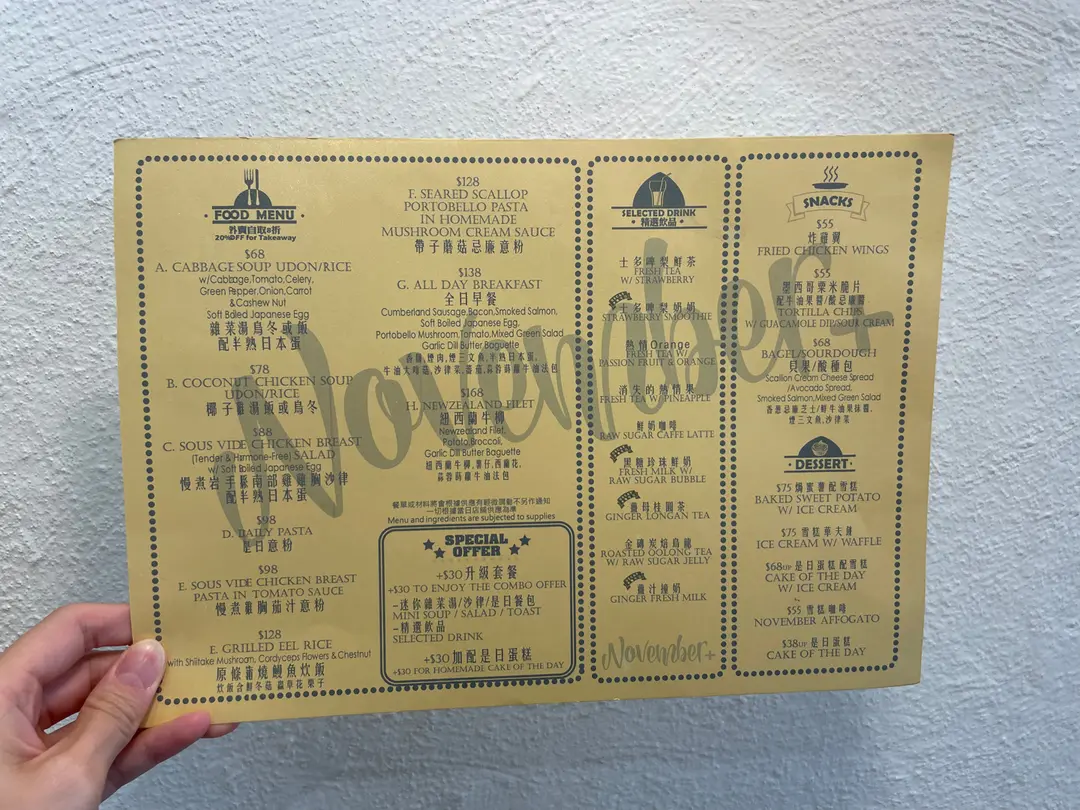 FOOD MENU
外賣自取8折
20%OFF for Takeaway
$68
A. CABBAGE SOUP UDON/RICE
w/Cabbage,Tomato,Celery,
Green Pepper,Onion,Carrot
&Cashew Nut
Soft Boiled Japanese Egg
雜菜湯烏冬或飯
配半熟日本蛋
$78
B. COCONUT CHICKEN SOUP
UDON/RICE
椰子雞湯飯或烏冬
$88
C. SOUS VIDE CHICKEN BREAST
(Tender & Hormone-Free) SALAD
w/ Soft Boiled Japanese Egg
慢煮岩手縣南部雞雞胸沙律
配半熟日本蛋
$98
D. DAILY PASTA
是日意粉
$98
E. SOUS VIDE CHICKEN BREAST
PASTA IN TOMATO SAUCE
慢煮雞胸茄汁意粉
$128
E. GRILLED EEL RICE
with Shiitake Mushroom, Cordyceps Flowers & Chestnut
原條蒲燒鰻魚炊飯
炊飯含鮮冬菇 蟲草花 栗子
$128
F. SEARED SCALLOP
PORTOBELLO PASTA
IN HOMEMADE
MUSHROOM CREAM SAUCE
帶子蘑菇忌廉意粉
$138
G. ALL DAY BREAKFAST
全日早餐
Cumberland Sausage,Bacon,Smoked Salmon,
Soft Boiled Japanese Egg,
Portobello Mushroom,Tomato,Mixed Green Salad
Garlic Dill Butter Baguette
香腸,煙肉,煙三文魚,半熟日本蛋,
牛油大啡菇,沙律菜,蕃茄,蒜蓉蒔蘿牛油法包
$168
H. NEWZEALAND FILET
紐西蘭牛柳
Newzealand Filet,
Potato,Broccoli,
Garlic Dill Butter Baguette
紐西蘭牛柳,薯仔,西蘭花,
蒜蓉蒔蘿牛油法包
餐單或材料將會根據供應有輕微調動不另作通知
一切根據當日店舖供應為準
Menu and ingredients are subjected to supplies
SPECIAL
OFFER
+$30升級套餐
+$30 TO ENJOY THE COMBO OFFER
-迷你雜菜湯/沙律/是日餐包
MINI SOUP / SALAD / TOAST
-精選飲品
SELECTED DRINK
+$30加配是日蛋糕
+$30 FOR HOMEMADE CAKE OF THE DAY
SELECTED DRINK
精選飲品
士多啤梨鮮茶
FRESH TEA
W/ STRAWBERRY
士多啤梨奶奶
STRAWBERRY SMOOTHIE
熱情Orange
FRESH TEA W/
PASSION FRUIT & ORANGE
消失的熱情果
FRESH TEA W/ PINEAPPLE
鮮奶咖啡
RAW SUGAR CAFFE LATTE
黑糖珍珠鮮奶
FRESH MILK W/
RAW SUGAR BUBBLE
薑母桂圓茶
GINGER LONGAN TEA
金磚炭焙烏龍
ROASTED OOLONG TEA
W/ RAW SUGAR JELLY
薑汁撞奶
GINGER FRESH MILK
November+
SNACKS
$55
炸雞翼
FRIED CHICKEN WINGS
$55
墨西哥粟米脆片
配牛油果醬/酸忌廉醬
TORTILLA CHIPS
W/ GUACAMOLE DIP/SOUR CREAM
$68
BAGEL/SOURDOUGH
貝果/酸種包
Scallion Cream Cheese Spread
/Avocado Spread,
Smoked Salmon,Mixed Green Salad
香葱忌廉芝士/鮮牛油果抹醬,
煙三文魚,沙律菜
DESSERT
$75 焗蜜薯配雪糕
BAKED SWEET POTATO
W/ ICE CREAM
$75 雪糕華夫餅
ICE CREAM W/ WAFFLE
$68UP 是日蛋糕配雪糕
CAKE OF THE DAY
W/ ICE CREAM
$55 雪糕咖啡
NOVEMBER AFFOGATO
$38UP 是日蛋糕
CAKE OF THE DAY
November+